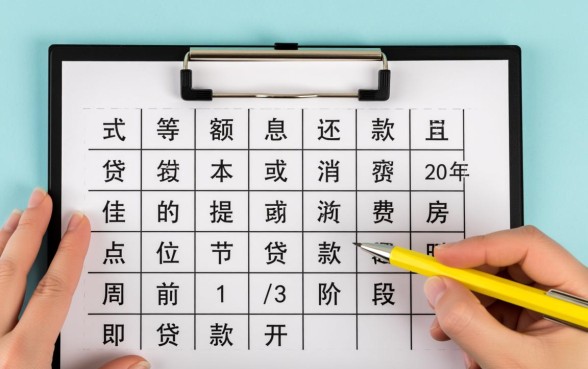 式 等 额 息 还 款
贷 本 或 消 20年
佳 的 提 费 房
点 位 节 贷 款
周 前 1 /3 阶 段
即 贷 款 开